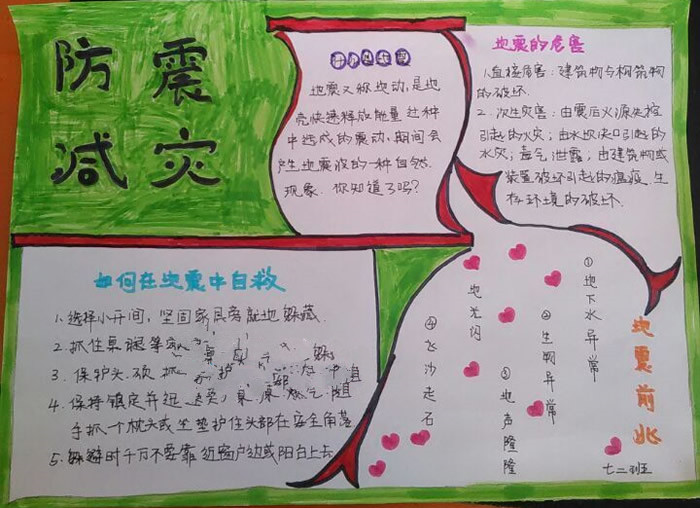 防震
减灾
地震又称地动,是地
壳快速释放能量过种
中造成的震动,期间会
产生地震波的一种自然
现象.你知道了吗?
地震的危害
1.直接危害:建筑物与构筑物
的破坏.
2.次生灾害:由震后火源失控
引起的火灾;由水坝决口引起的
水灾;毒气泄露;由建筑物或
装置破坏引起的瘟疫.生
存环境的破坏.
如何在地震中自救
1.选择小开间,坚固家具旁就地躲藏.
2.抓住桌腿等
3.保护头
4.保持镇定并迅
手抓一个枕头或坐垫护住头部在安全角落
5.躲避时千万不要靠近窗户边或阳台上去
地震前兆
①地下水异常
②生物异常
③地声隆隆
④飞沙走石
地光闪
七二班